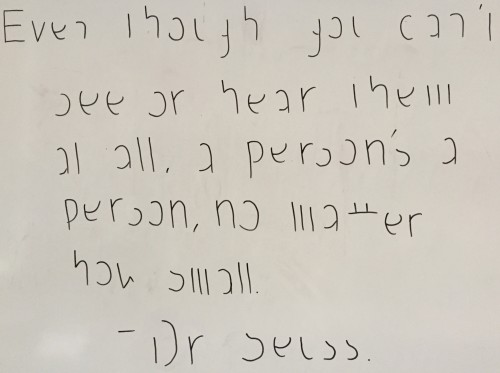 Even though you can't
see or hear them
at all, a person's a
person, no matter
how small.
- Dr Seuss.